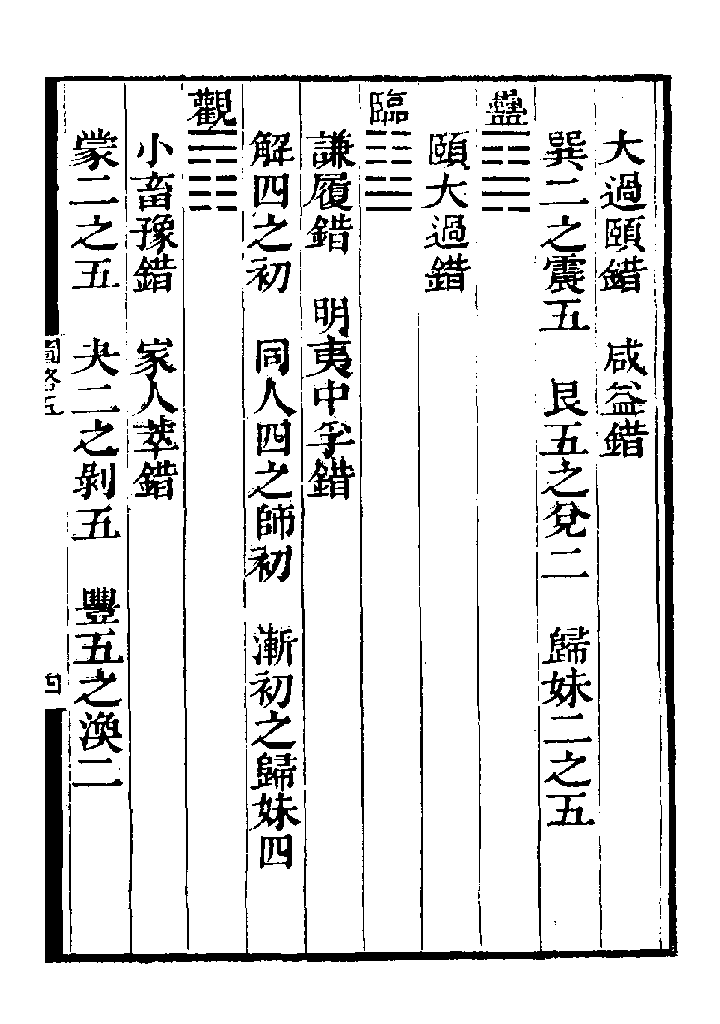 大過頤錯　咸益錯
巽二之震五　艮五之兌二　歸妹二之五
蠱䷑
頤大過錯
臨䷒
謙履錯　明夷中孚錯
解四之初　同人四之師初　漸初之歸妹四
觀䷓
小畜豫錯　家人萃錯
蒙二之五　夬二之剝五　豐五之渙二
圖略五
四